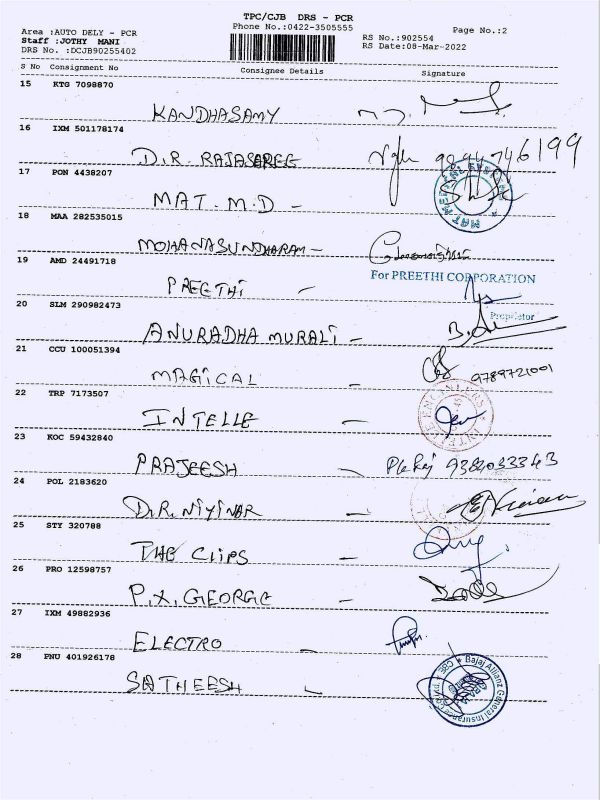 TPC/CJB DRS - PCR
Phone No.:0422-3505555
Page No.:2
Area :AUTO DELY - PCR
Staff :JOTHY MANI
DRS No. :DCJB90255402
RS No.:902554
RS Date:08-Mar-2022
S No Consignment No Consignee Details Signature
15 KTG 7098870
KANDHASAMY
16 IXM 501178174
D.R. RAJASAREE 9894746199
17 PON 4438207
MAT. M.D -
18 MAA 282535015
MOHANASUNDHARAM -
19 AMD 24491718
For PREETHI CORPORATION
PREETHI -
Proprietor
20 SLM 290982473
ANURADHA MURALI -
21 CCU 100051394
MAGICAL - 9789721001
22 TRP 7173507
INTELLE -
23 KOC 59432840
PRAJEESH - 9384033343
24 POL 2183620
D.R. NIYINAR -
25 STY 320788
THE CLIPS -
26 PRO 12598757
P.X. GEORGE -
27 IXM 49882936
ELECTRO -
28 PNU 401926178
SATHEESH -
Bajaj Allianz General Insurance
CBE